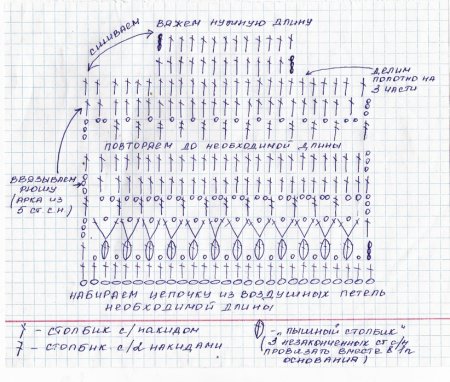 ВЯЖЕМ НУЖНУЮ ДЛИНУ
СШИВАЕМ
ДЕЛИМ
ПОЛОТНО НА
3 ЧАСТИ
ПОВТОРЯЕМ ДО НЕОБХОДИМОЙ ДЛИНЫ
ВВЯЗЫВАЕМ
РЮШУ
(АРКА ИЗ
5 СТ. С.Н.)
НАБИРАЕМ ЦЕПОЧКУ ИЗ ВОЗДУШНЫХ ПЕТЕЛЬ
НЕОБХОДИМОЙ ДЛИНЫ
- СТОЛБИК С/НАКИДОМ
- СТОЛБИК С/2 НАКИДАМИ
- "ПЫШНЫЙ СТОЛБИК"
(3 НЕЗАКОНЧЕННЫХ СТ С/Н
ПРОВЯЗАТЬ ВМЕСТЕ В 1/П
ОСНОВАНИЯ)